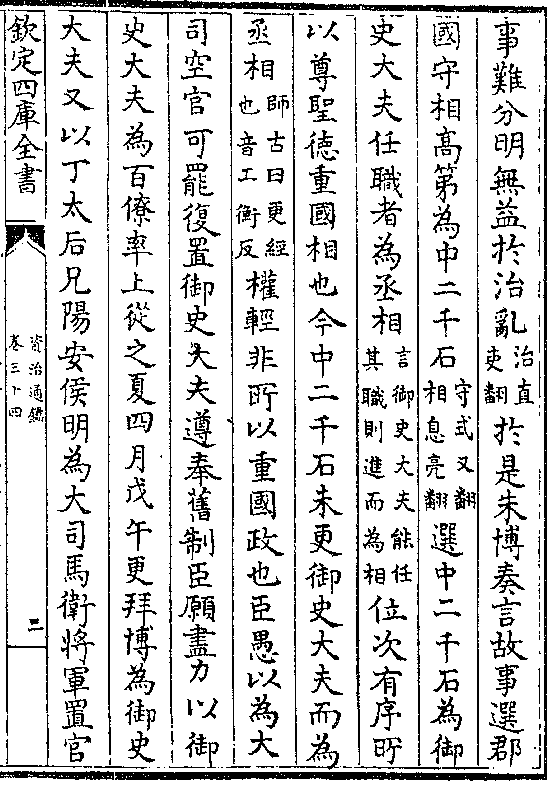 事難分明無益於治亂治直吏翻於是朱博奏言故事選郡
國守相高第為中二千石守式又翻相息亮翻選中二千石為御
史大夫任職者為丞相言御史大夫能任其職則進而為相位次有序所
以尊聖徳重國相也今中二千石未更御史大夫而為
丞相師古曰更經也音工衡反權輕非所以重國政也臣愚以為大
司空官可罷復置御史大夫遵奉舊制臣願盡力以御
史大夫為百僚率上從之夏四月戊午更拜博為御史
大夫又以丁太后兄陽安侯明為大司馬衛將軍置官
欽定四庫全書
資治通鑑
卷三十四
三